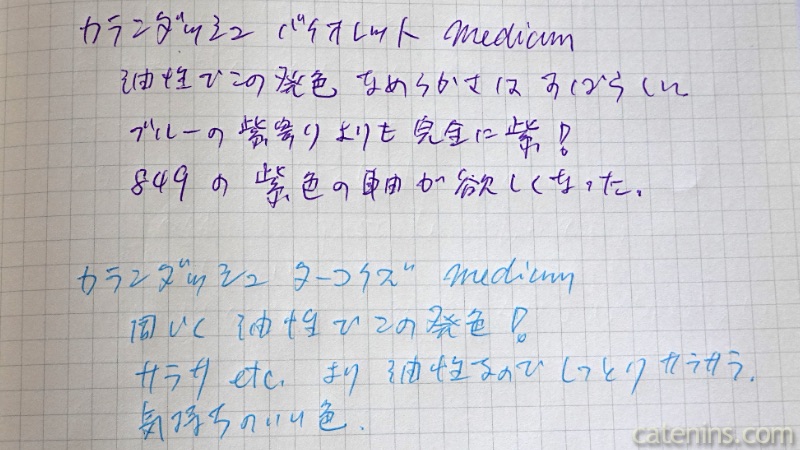 カランダッシュ バイオレット medium
油性でこの発色 なめらかさは すばらしい
ブルーの紫寄りよりも 完全に紫!
849 の 紫色の軸が欲しくなった.
カランダッシュ ターコイズ medium
同じく 油性でこの発色!
サラサ etc. より 油性なので しっとりサラサラ.
気持ちのいい色.
catenins.com